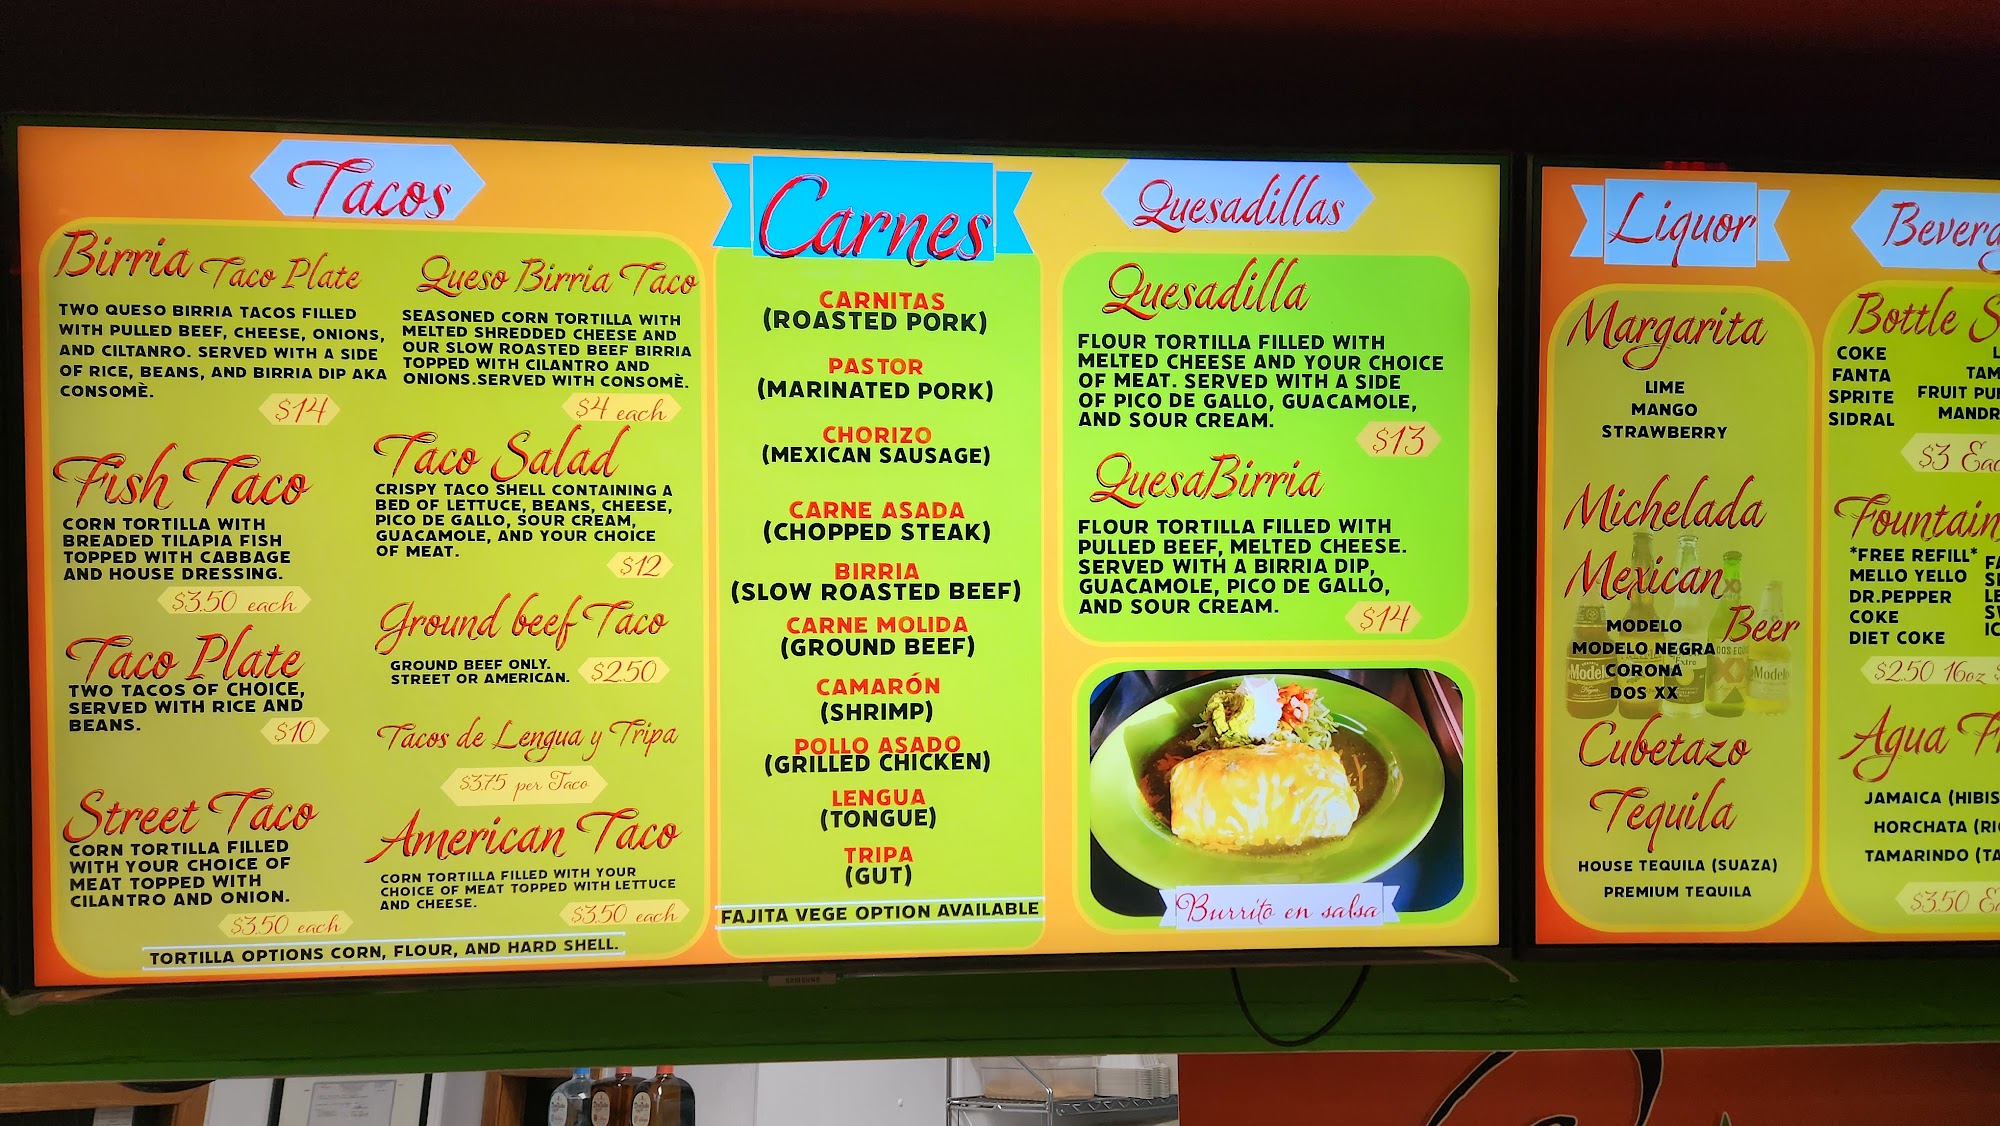 Tacos
Birria Taco Plate
TWO QUESO BIRRIA TACOS FILLED
WITH PULLED BEEF, CHEESE, ONIONS,
AND CILTANRO. SERVED WITH A SIDE
OF RICE, BEANS, AND BIRRIA DIP AKA
CONSOMÈ.
$14
Fish Taco
CORN TORTILLA WITH
BREADED TILAPIA FISH
TOPPED WITH CABBAGE
AND HOUSE DRESSING.
$3.50 each
Taco Plate
TWO TACOS OF CHOICE,
SERVED WITH RICE AND
BEANS.
$10
Street Taco
CORN TORTILLA FILLED
WITH YOUR CHOICE OF
MEAT TOPPED WITH
CILANTRO AND ONION.
$3.50 each
Queso Birria Taco
SEASONED CORN TORTILLA WITH
MELTED SHREDDED CHEESE AND
OUR SLOW ROASTED BEEF BIRRIA
TOPPED WITH CILANTRO AND
ONIONS.SERVED WITH CONSOMÈ.
$4 each
Taco Salad
CRISPY TACO SHELL CONTAINING A
BED OF LETTUCE, BEANS, CHEESE,
PICO DE GALLO, SOUR CREAM,
GUACAMOLE, AND YOUR CHOICE
OF MEAT.
$12
Ground beef Taco
GROUND BEEF ONLY.
STREET OR AMERICAN.
$2.50
Tacos de Lengua y Tripa
$3.75 per Taco
American Taco
CORN TORTILLA FILLED WITH YOUR
CHOICE OF MEAT TOPPED WITH LETTUCE
AND CHEESE.
$3.50 each
TORTILLA OPTIONS CORN, FLOUR, AND HARD SHELL.
Carnes
CARNITAS
(ROASTED PORK)
PASTOR
(MARINATED PORK)
CHORIZO
(MEXICAN SAUSAGE)
CARNE ASADA
(CHOPPED STEAK)
BIRRIA
(SLOW ROASTED BEEF)
CARNE MOLIDA
(GROUND BEEF)
CAMARÓN
(SHRIMP)
POLLO ASADO
(GRILLED CHICKEN)
LENGUA
(TONGUE)
TRIPA
(GUT)
FAJITA VEGE OPTION AVAILABLE
Quesadillas
Quesadilla
FLOUR TORTILLA FILLED WITH
MELTED CHEESE AND YOUR CHOICE
OF MEAT. SERVED WITH A SIDE
OF PICO DE GALLO, GUACAMOLE,
AND SOUR CREAM.
$13
QuesaBirria
FLOUR TORTILLA FILLED WITH
PULLED BEEF, MELTED CHEESE.
SERVED WITH A BIRRIA DIP,
GUACAMOLE, PICO DE GALLO,
AND SOUR CREAM.
$14
Burrito en salsa
SAMSUNG
Liquor
Margarita
LIME
MANGO
STRAWBERRY
Michelada
Mexican
Beer
MODELO
MODELO NEGRA
CORONA
DOS XX
Cubetazo
Tequila
HOUSE TEQUILA (SUAZA)
PREMIUM TEQUILA
Bottle
COKE
FANTA
SPRITE
SIDRAL
FRUIT
$3
Fountain
*FREE REFILL*
MELLO YELLO
DR.PEPPER
COKE
DIET COKE
$2.50 16oz
Agua
JAMAICA
HORCHATA
TAMARINDO
$3.50